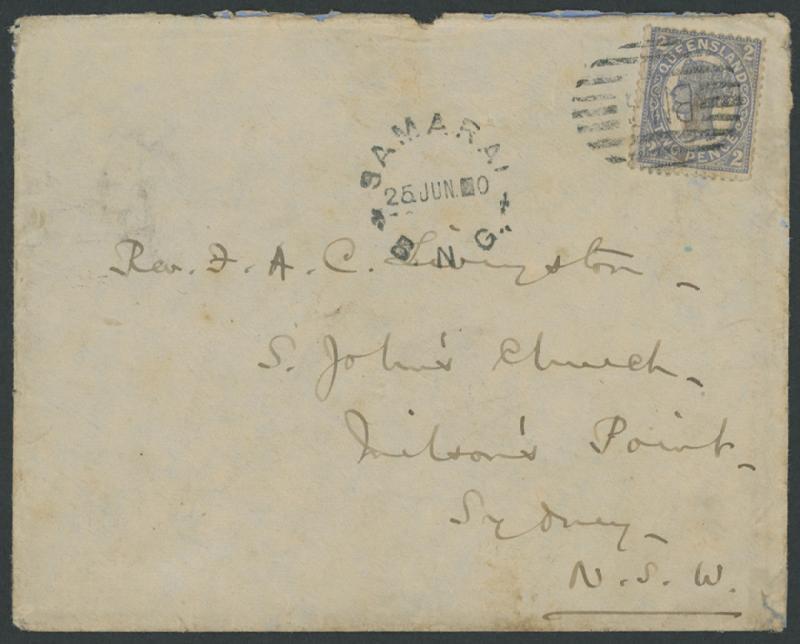 QUEENSLAND
2 2
2 TWO PENCE 2
SAMARAI
25 JUN. 0
B. N. G.
Rev. F. A. C. Livingston
S. John's Church
Milson's Point
Sydney
N. S. W.